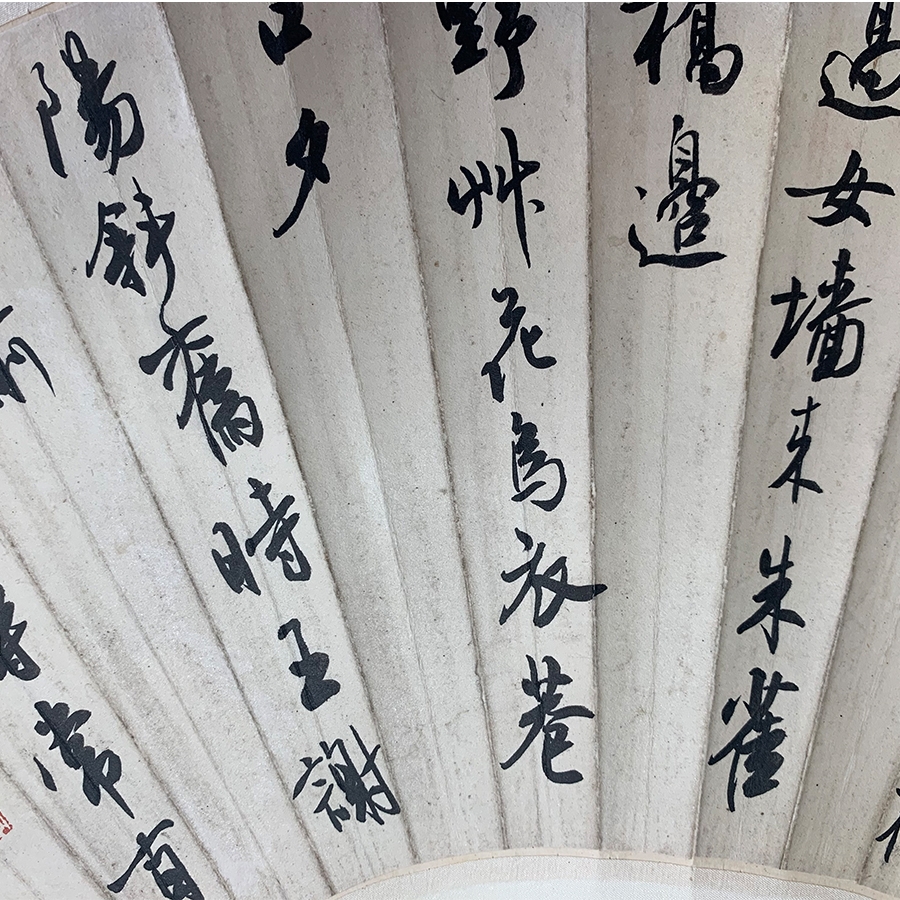 過女墻来朱雀
橋邊
野艸花烏衣巷
口夕
陽斜舊時王謝
前
尋常百